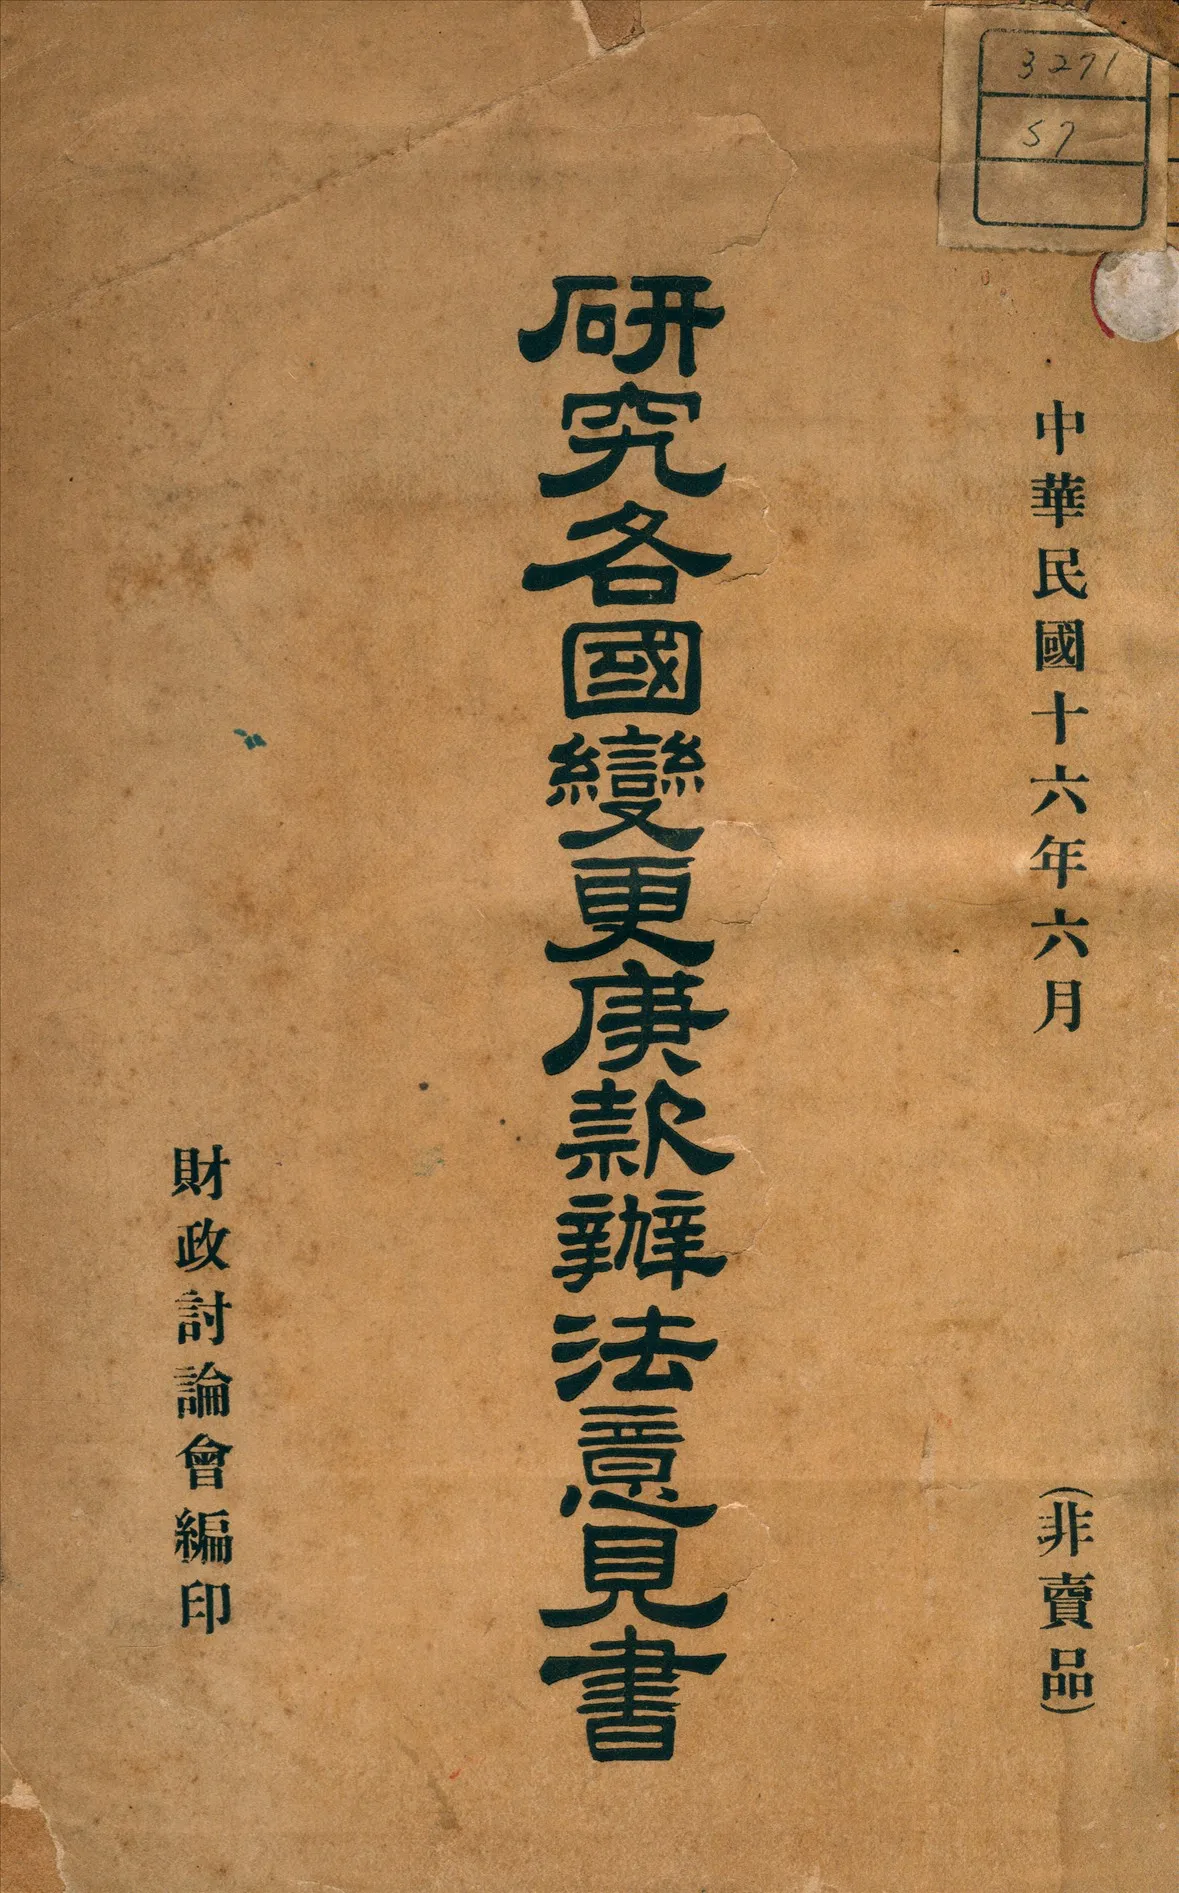 3271
57
中華民國十六年六月
(非賣品)
研究各國變更庚款辦法意見書
財政討論會編印